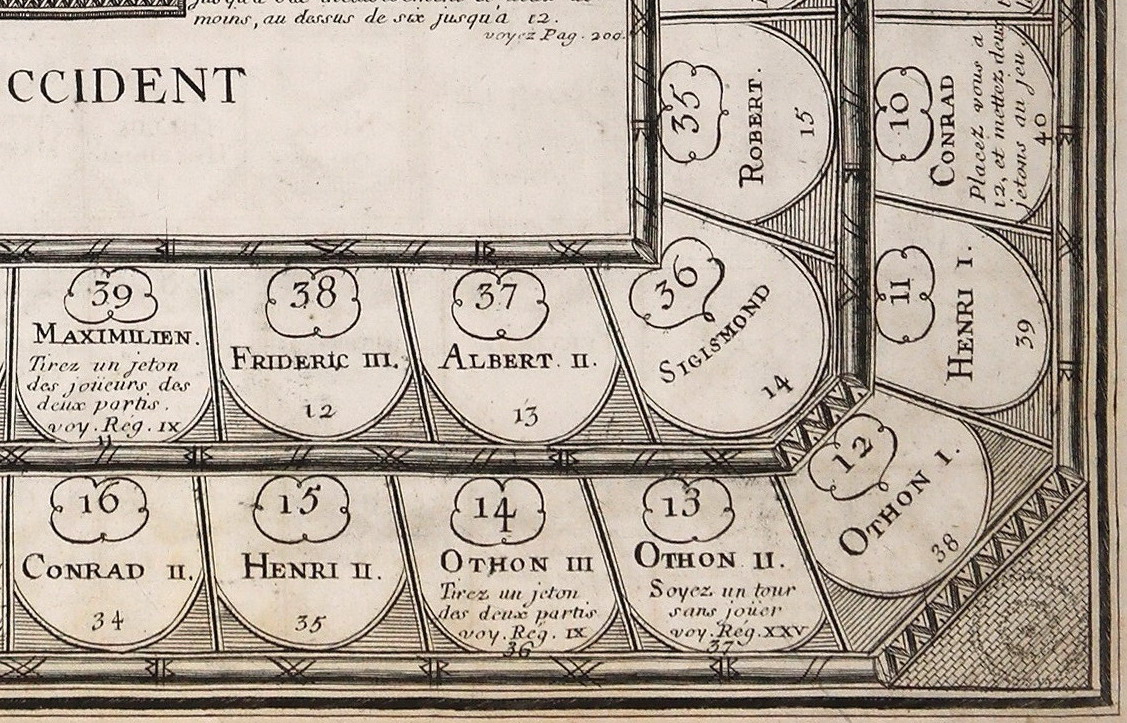 moins, au dessus de six jusqu'a 12.
voyez Pag. 200.
CCIDENT
35
ROBERT.
15
10
CONRAD
Placez vous a
12, et mettez deux
jetons au jeu,
40
36
SIGISMOND
14
11
HENRI I.
39
39
MAXIMILIEN.
Tirez un jeton
des joüeurs des
deux partis.
voy. Reg. IX
11
38
FRIDERIC III.
12
37
ALBERT. II.
13
12
OTHON I.
38
16
CONRAD II.
34
15
HENRI II.
35
14
OTHON III
Tirez un jeton
des deux partis
voy. Reg. IX
36
13
OTHON II.
Soyez un tour
sans joüer
voy. Reg. XXV
37